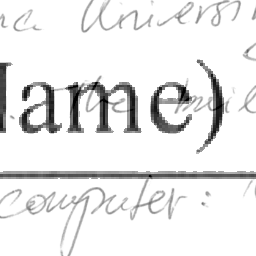 Universi
Name) The buil
computer: